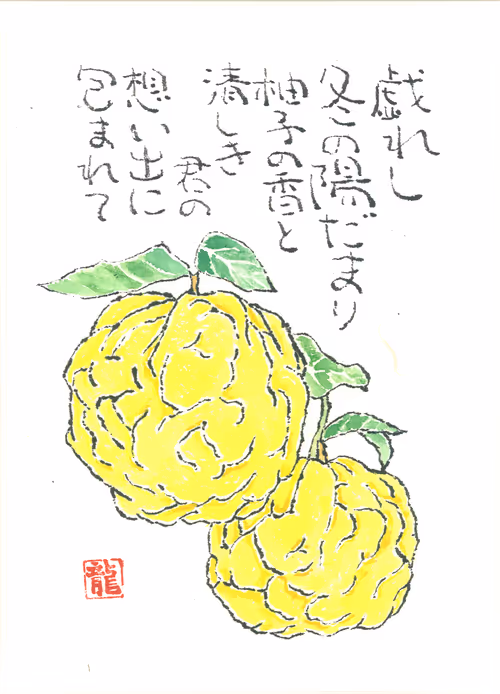 戯れし
冬の陽だまり
柚子の香と
清しき
君の
想い出に
包まれて
龍